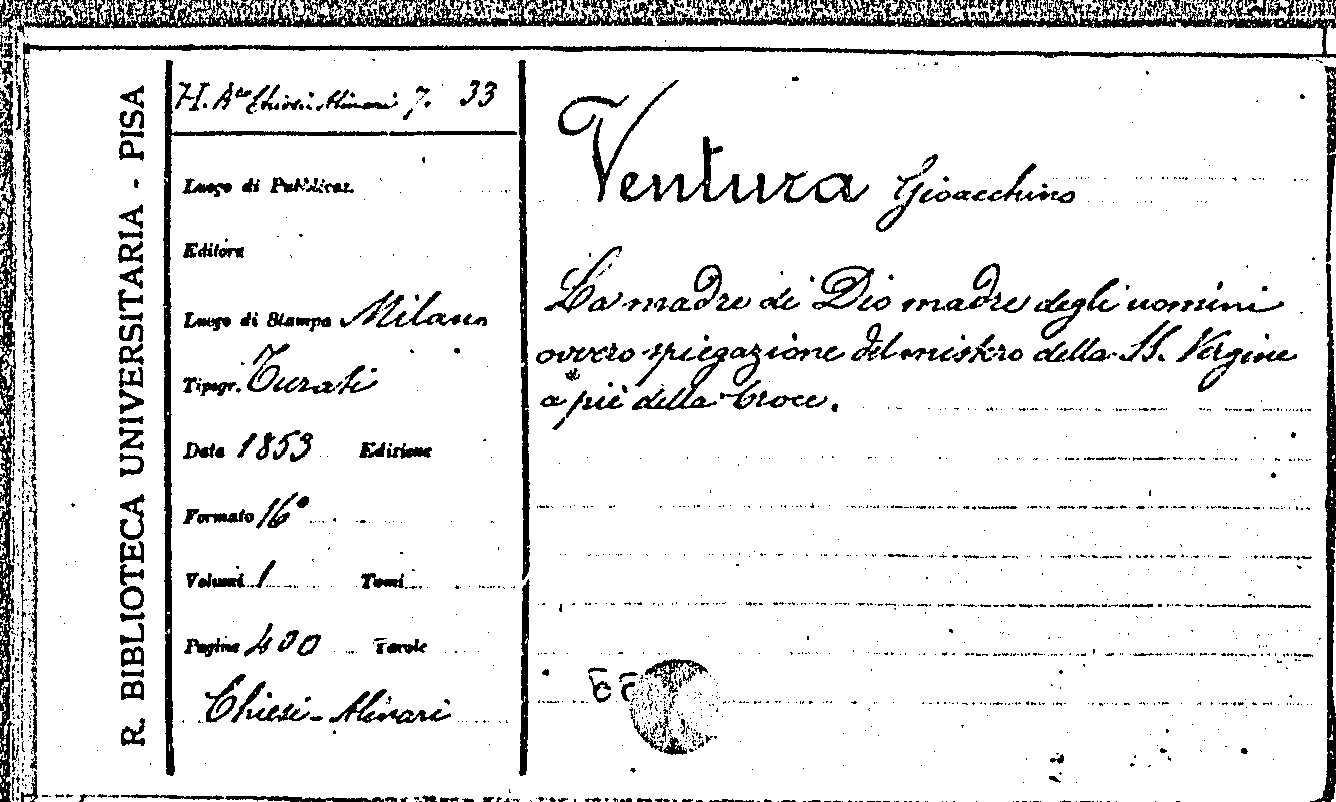 R. BIBLIOTECA UNIVERSITARIA - PISA
H. Chiesi Alinari 7. 33
Luogo di Pubblicaz.
Editore
Luogo di Stampa Milano
Tipogr. Turati
Data 1853 Edizione
Formato 16°
Volumi 1 Tomi
Pagine 400 Tavole
Chiesi - Alinari
Ventura Gioacchino
La madre di Dio madre degli uomini
ovvero spiegazione del mistero della SS. Vergine
a piè della Croce.